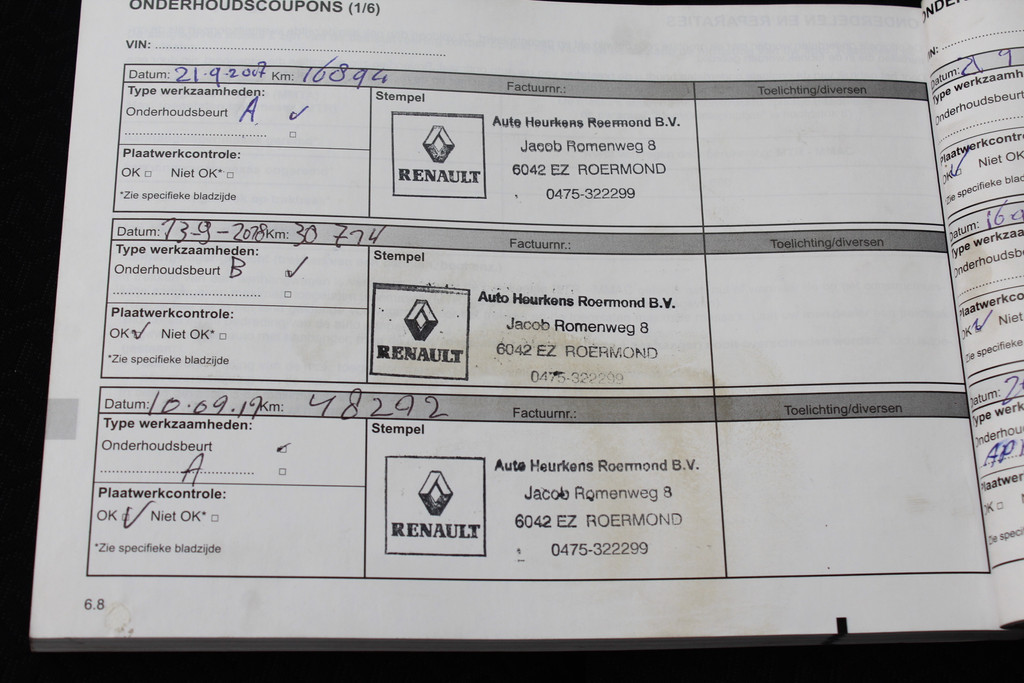 ONDERHOUDSCOUPONS (1/6)
VIN:
Datum: 21-9-2007 Km: 16894 Factuurnr.: Toelichting/diversen
Type werkzaamheden:
Onderhoudsbeurt A
Plaatwerkcontrole:
OK Niet OK*
*Zie specifieke bladzijde
Stempel
RENAULT
Auto Heurkens Roermond B.V.
Jacob Romenweg 8
6042 EZ ROERMOND
0475-322299
Datum: 13-9-2008 Km: 30 714 Factuurnr.: Toelichting/diversen
Type werkzaamheden:
Onderhoudsbeurt B
Plaatwerkcontrole:
OK Niet OK*
*Zie specifieke bladzijde
Stempel
RENAULT
Auto Heurkens Roermond B.V.
Jacob Romenweg 8
6042 EZ ROERMOND
0475-322299
Datum: 10.09.19 Km: 48292 Factuurnr.: Toelichting/diversen
Type werkzaamheden:
Onderhoudsbeurt
A
Plaatwerkcontrole:
OK Niet OK*
*Zie specifieke bladzijde
Stempel
RENAULT
Auto Heurkens Roermond B.V.
Jacob Romenweg 8
6042 EZ ROERMOND
0475-322299
6.8
Datum:
Type werkzaamh
Onderhoudsbeurt
Plaatwerkcontr
OK Niet OK
Zie specifieke blad
Datum: 16
Type werkza
Onderhoudsb
Plaatwerkco
OK Niet
Zie specifieke
Datum:
Type werk
Onderhou
Plaatwer
OK
Zie speci